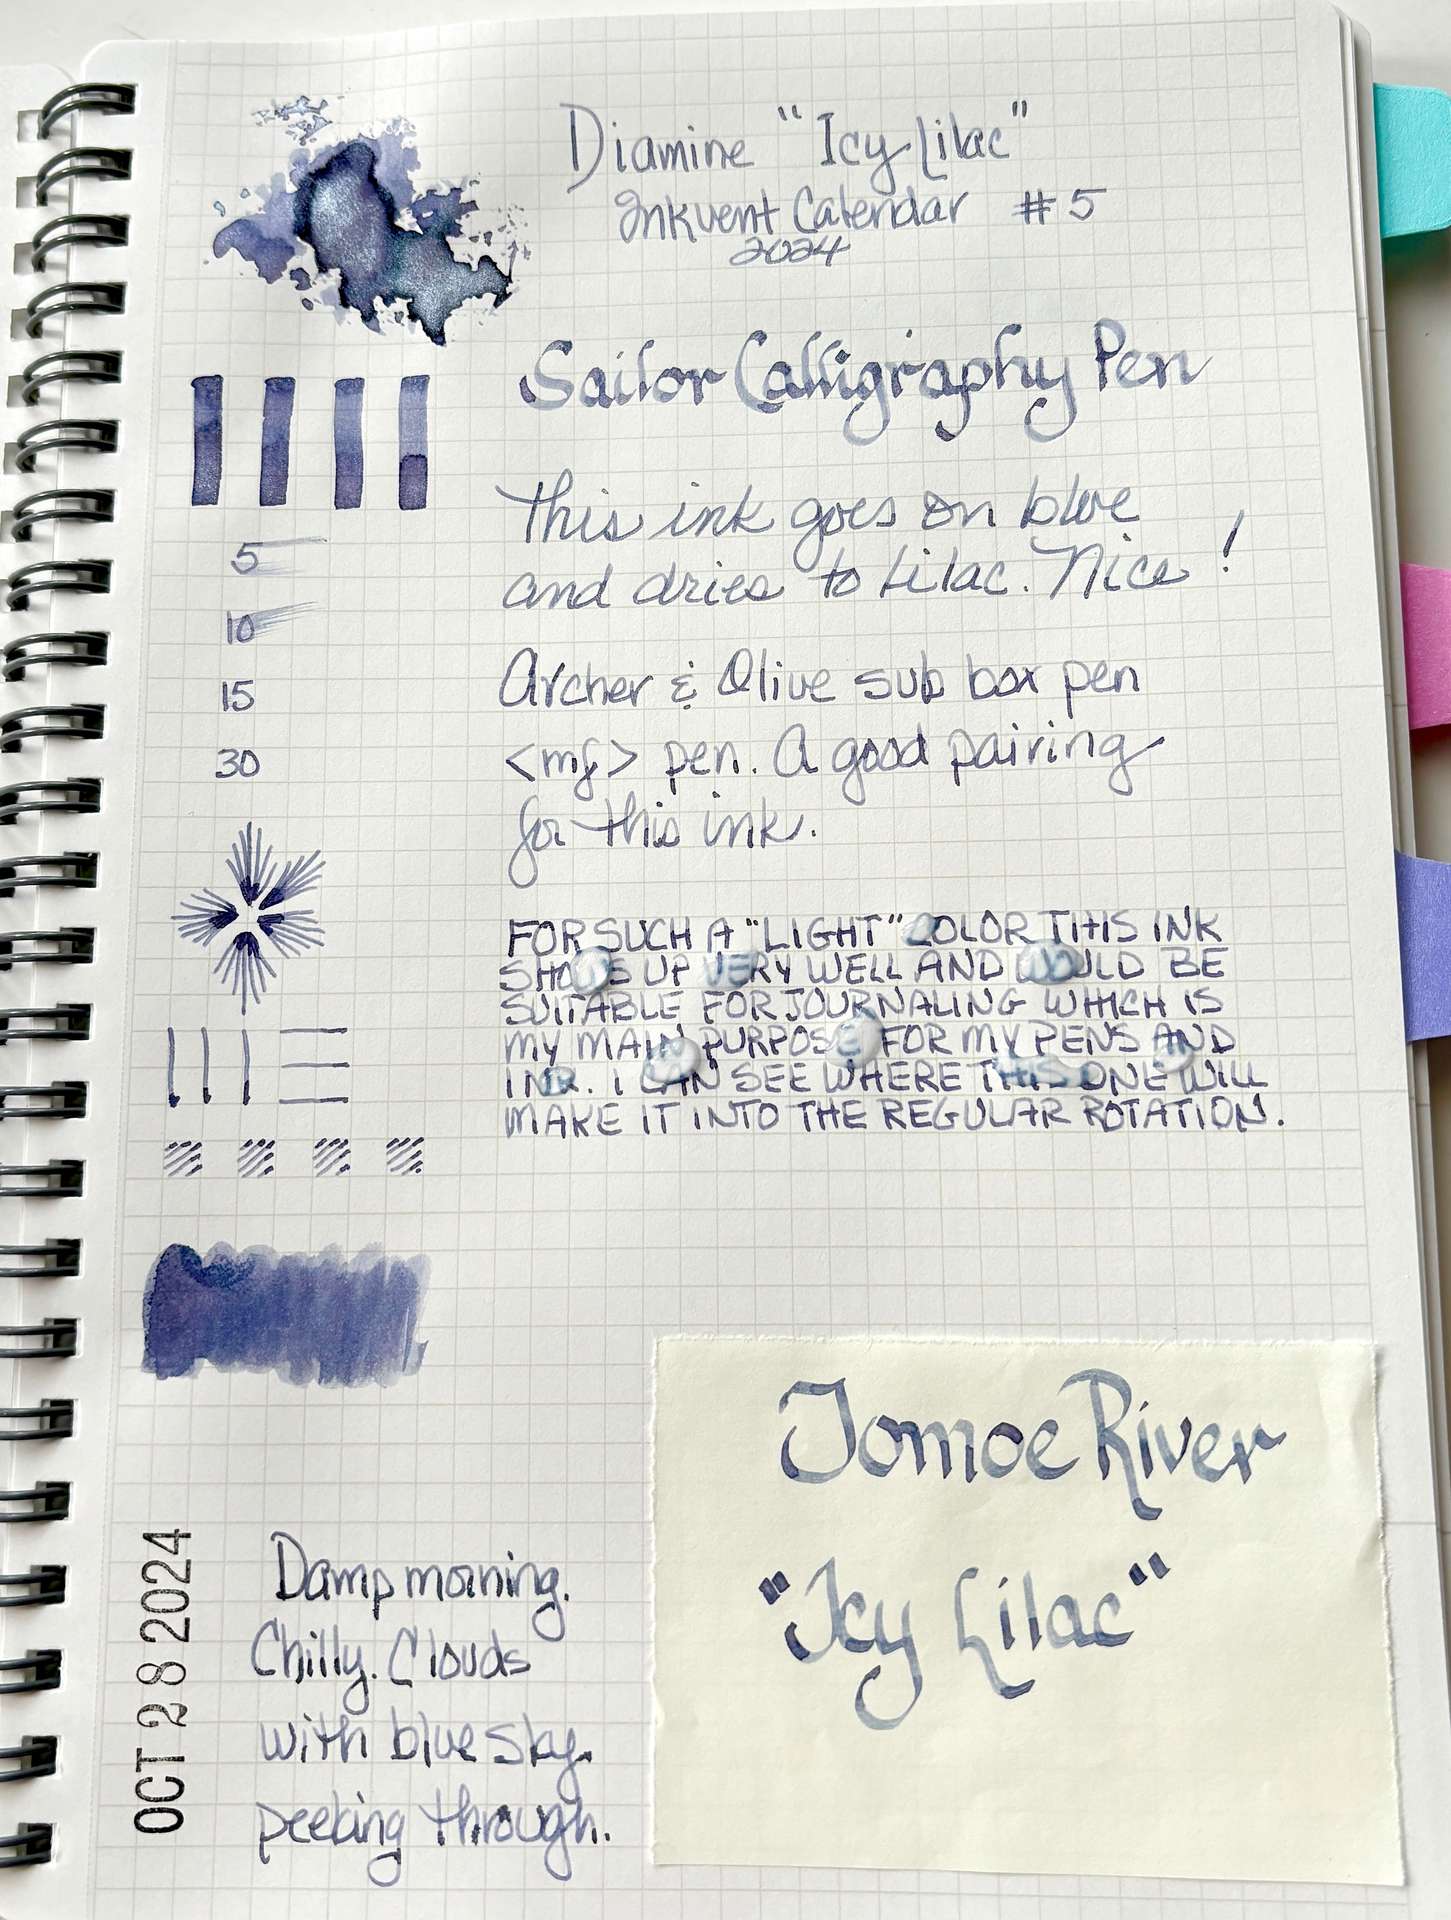 Diamine "Icy Lilac"
Inkvent Calendar #5
2024
Sailor Calligraphy Pen
This ink goes on blue
and dries to Lilac. Nice!
5
10
15
30
Archer & Olive sub box pen
<mf> pen. A good pairing
for this ink.
FOR SUCH A "LIGHT" COLOR THIS INK
SHOWS UP VERY WELL AND WOULD BE
SUITABLE FOR JOURNALING WHICH IS
MY MAIN PURPOSE FOR MY PENS AND
INK. I CAN SEE WHERE THIS ONE WILL
MAKE IT INTO THE REGULAR ROTATION.
Tomoe River
"Icy Lilac"
OCT 28 2024
Damp morning.
Chilly. Clouds
with blue sky
peeking through.